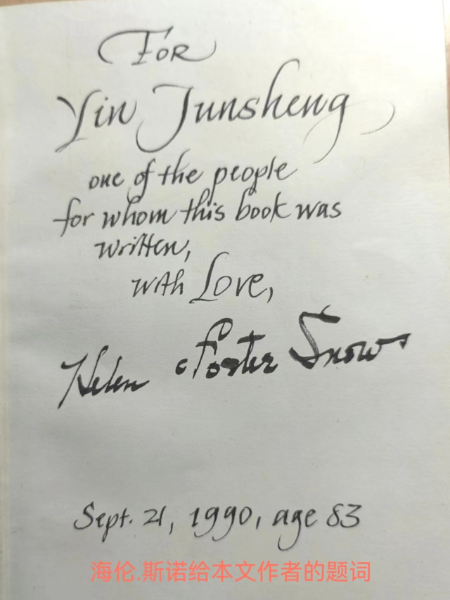 For
Yin Junsheng
one of the people
for whom this book was
written,
with Love,
Helen Foster Snow
Sept. 21, 1990, age 83
海伦.斯诺给本文作者的题词